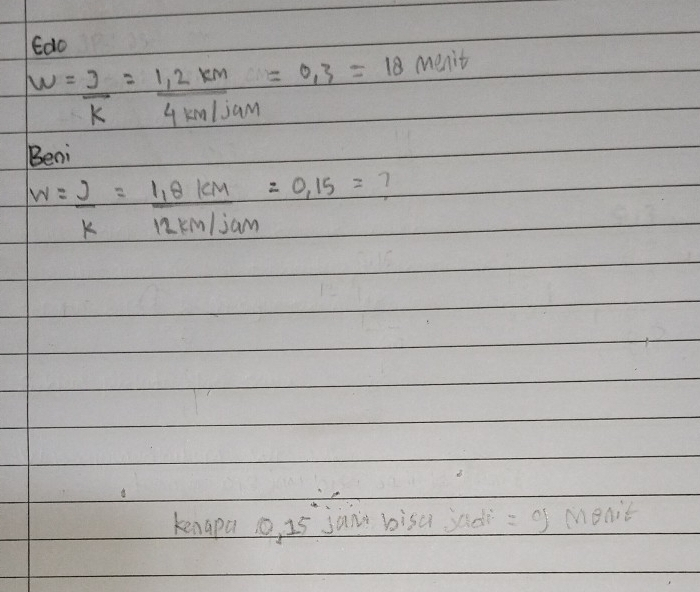 Edo
W = J/K = 1,2 km / 4 km/jam = 0,3 = 18 Menit
Beni
W = J/K = 1,8 km / 12 km/jam = 0,15 = ?
kenapa 0,15 jam bisa jadi = 9 Menit